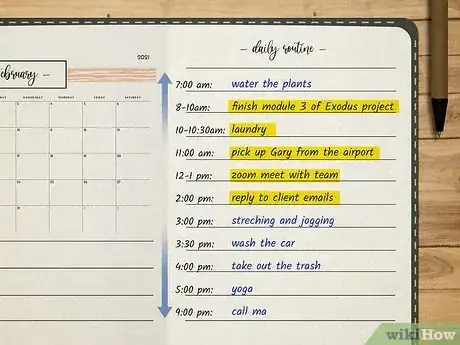 2021
February —
— daily routine —
7:00 am: water the plants
8-10am: finish module 3 of Exodus project
10-10:30am: laundry
11:00 am: pick up Gary from the airport
12-1 pm: zoom meet with team
2:00 pm: reply to client emails
3:00 pm: streching and jogging
3:30 pm: wash the car
4:00 pm: take out the trash
5:00 pm: yoga
9:00 pm: call ma
wikiHow